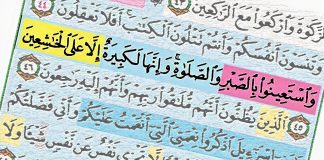 زَّكَوٰةَ وَٱرْكَعُوا۟ مَعَ ٱلرَّٰكِعِينَ ٤٣
أَنفُسَكُمْ وَأَنتُمْ تَتْلُونَ ٱلْكِتَٰبَ أَفَلَا تَعْقِلُونَ ٤٤
وَٱسْتَعِينُوا۟ بِٱلصَّبْرِ وَٱلصَّلَوٰةِ وَإِنَّهَا لَكَبِيرَةٌ إِلَّا عَلَى ٱلْخَٰشِعِينَ
٤٥ ٱلَّذِينَ يَظُنُّونَ أَنَّهُم مُّلَٰقُوا۟ رَبِّهِمْ وَأَنَّهُمْ إِلَيْهِ رَٰجِعُونَ ٤٦
ٱذْكُرُوا۟ نِعْمَتِىَ ٱلَّتِىٓ أَنْعَمْتُ عَلَيْكُمْ وَأَنِّى فَضَّلْتُكُمْ
نَفْسٌ عَن نَّفْسٍ شَيْـًٔا وَلَا